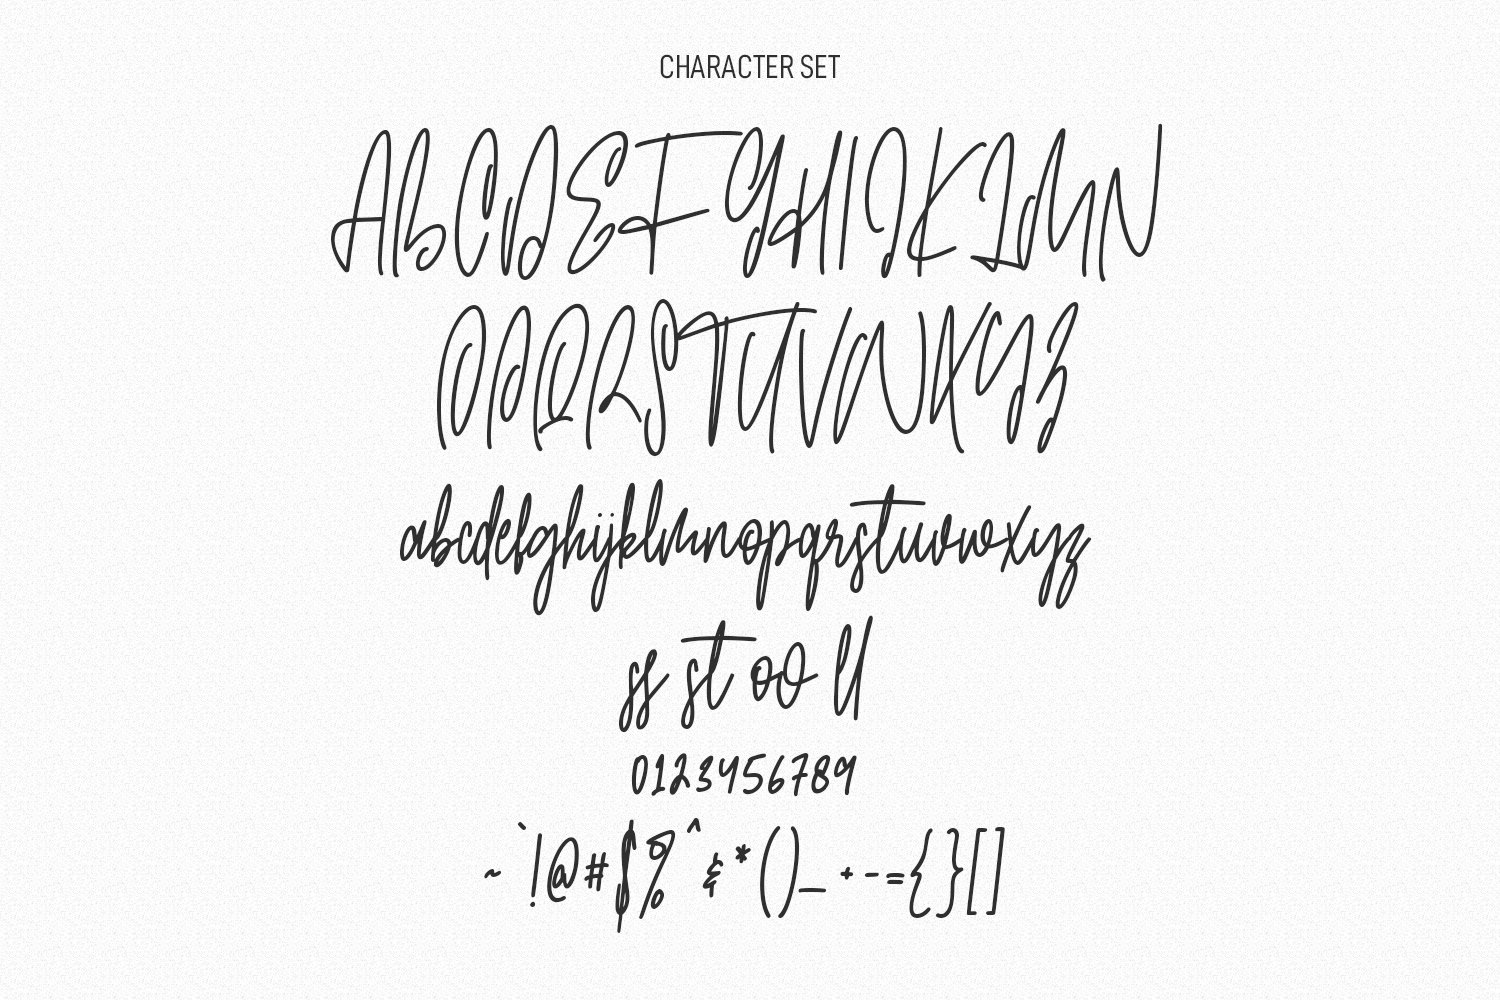 CHARACTER SET
ABCDEFGHIJKLMN
OPQRSTUVWXYZ
abcdefghijklmnopqrstuvwxyz
ss st oo ll
0123456789
~`!@#$%^&*()_+-={}[]